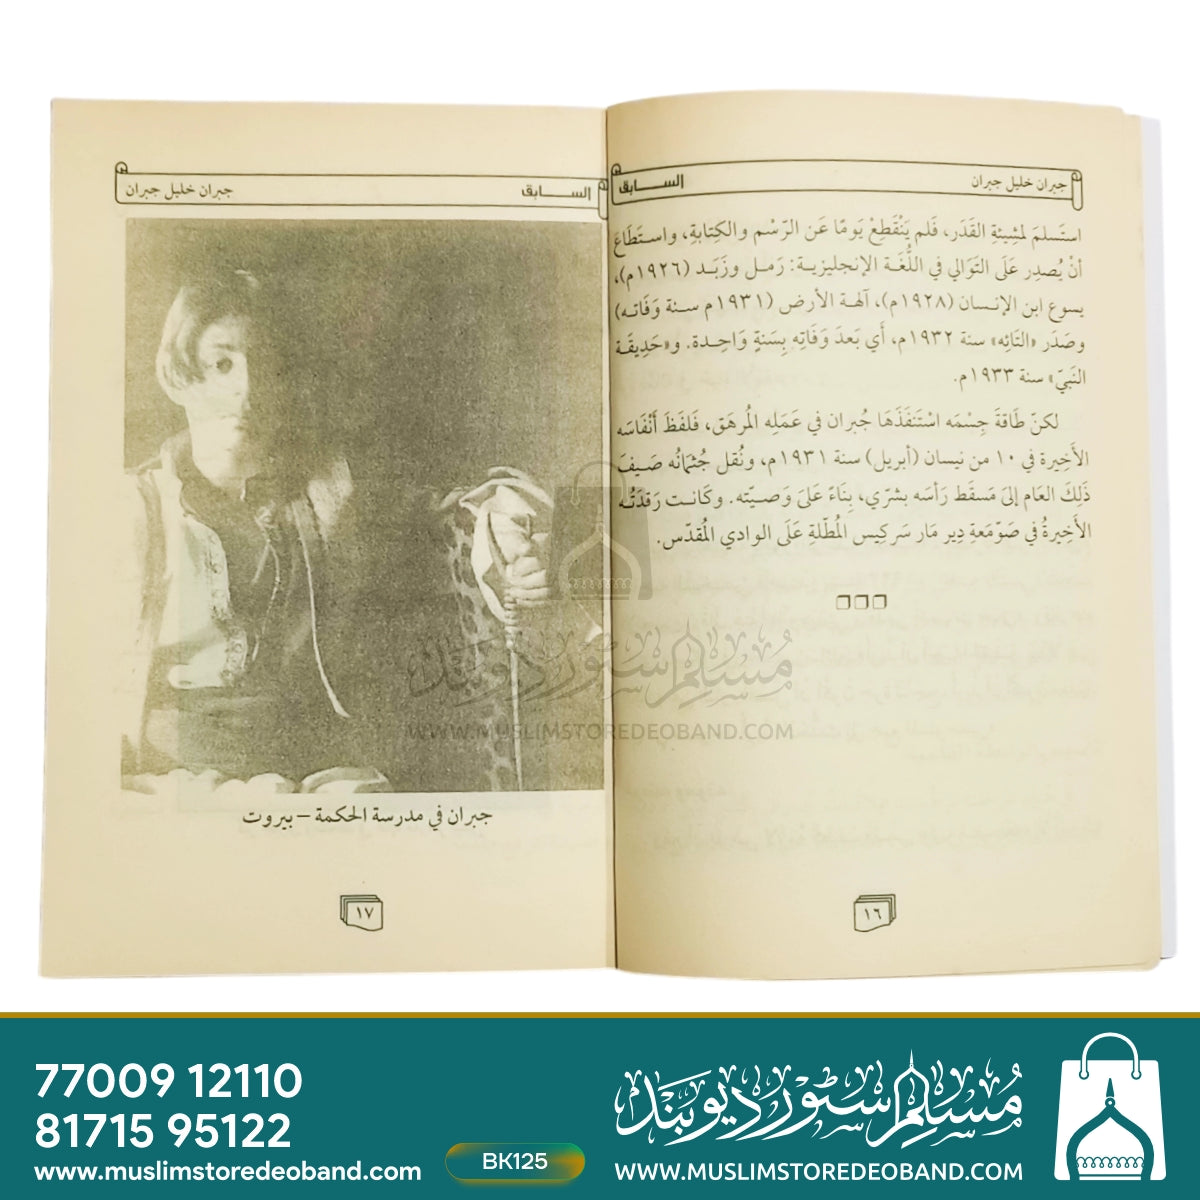 جبران خليل جبران
السابق
استَسلمَ لمشِيئةِ القَدَر، فَلم يَنْقَطِعْ يَومًا عَن الرّسْم والكِتابةِ، واستَطَاعَ
أنْ يُصدِر عَلَى التّوَالي في اللُّغَة الإنجليزية: رَمل وزَبَد (١٩٢٦م)،
يسوع ابن الإنسان (١٩٢٨م)، آلهة الأرض (١٩٣١م سنة وَفَاته)
وصَدَر «التَائِه» سنة ١٩٣٢م، أَي بَعدَ وَفَاتِه بِسَنةٍ وَاحِدة. و«حَدِيقَة
النَبيّ» سنة ١٩٣٣م.
لكنّ طَاقةَ جِسْمَه اسْتَنفَذَهَا جُبران في عَمَلِه المُرهَق، فَلفَظَ أَنْفَاسَه
الأَخِيرة في ١٠ من نيسان (أبريل) سنة ١٩٣١م، ونُقل جُثمَانُه صَيفَ
ذَلِكَ العَام إلىَ مَسقَط رَأسَه بشرّي، بِنَاءً عَلىَ وَصيّته. وكَانت رَقدَتُه
الأَخِيرةُ في صَوّمَعةِ دِير مَار سَركِيس المُطّلةِ عَلَى الوادي المُقدّس.
١٦
السابق
جبران خليل جبران
جبران في مدرسة الحكمة – بيروت
١٧
مسلم ستور ديوبند
WWW.MUSLIMSTOREDEOBAND.COM
77009 12110
81715 95122
www.muslimstoredeoband.com
BK125
مسلم ستور ديوبند
WWW.MUSLIMSTOREDEOBAND.COM